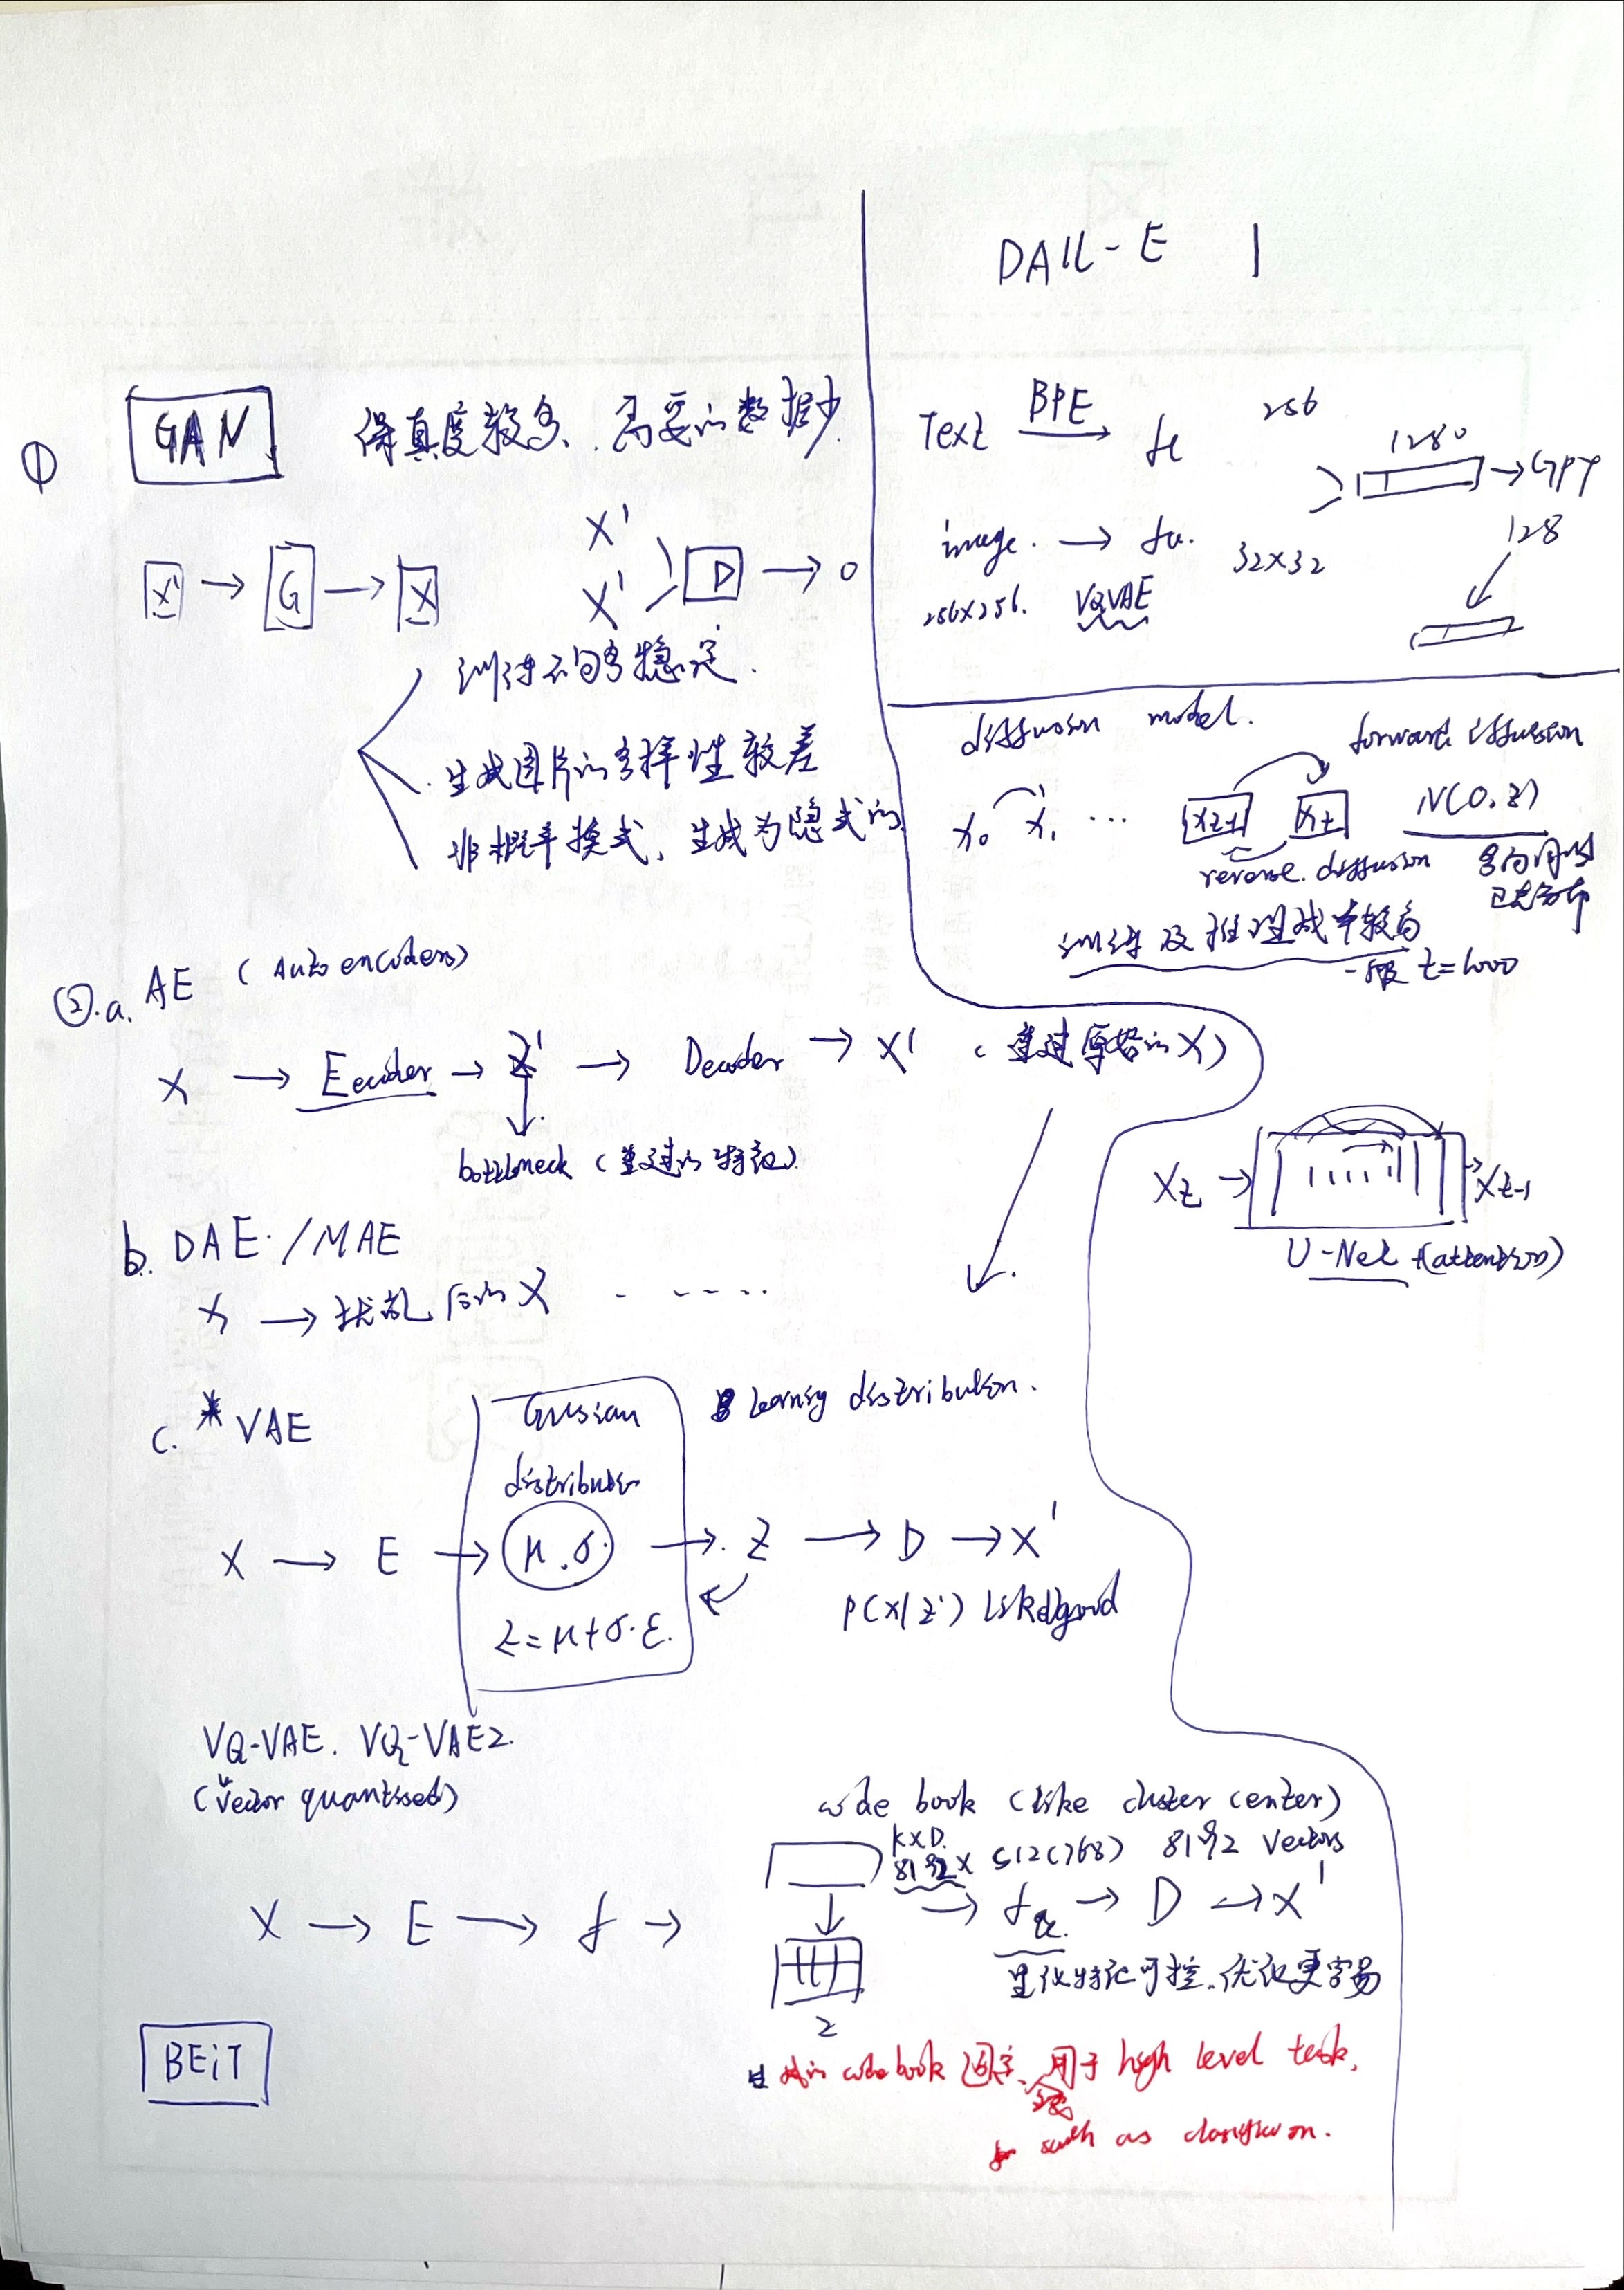 ① GAN 保真度较多、需要的数据少
X' → G → X
X'
X' D → 0
训练不够稳定.
生成图片的多样性较差
非概率模式,生成为隐式的
②.a. AE (Auto encoders)
X → Eecider → Z' → Decoder → X' (重建原始的X)
bottleneck (重建的特征)
b. DAE /MAE
X → 扰乱后的X . . . . . .
c. * VAE
Gussian
distribution
Learning distribution.
X → E → μ.σ. → Z → D → X'
Z = μ+σ·ε.
P(X|Z')
VQ-VAE. VQ-VAE2.
(Vector quantised)
code book (like cluster center)
KXD.
8192 x 512(768) 8192 Vectors
X → E → f → → fq → D → X'
Z
量化特征可控.优化更容易
生成的 codebook 用于 high level task,
such as
BEiT
DALL-E 1
Text BPE → ft 256
1280 → GPT
image. → fv. 32×32
256×256. VQVAE
128
diffusion model.
forward diffusion
X0 X1 ... Xt-1 Xt N(0,
reverse diffusion 各向同性
正态分布
训练及推理成本较高
一般 t=1000
Xt → → Xt-1
U-Net +(attention)